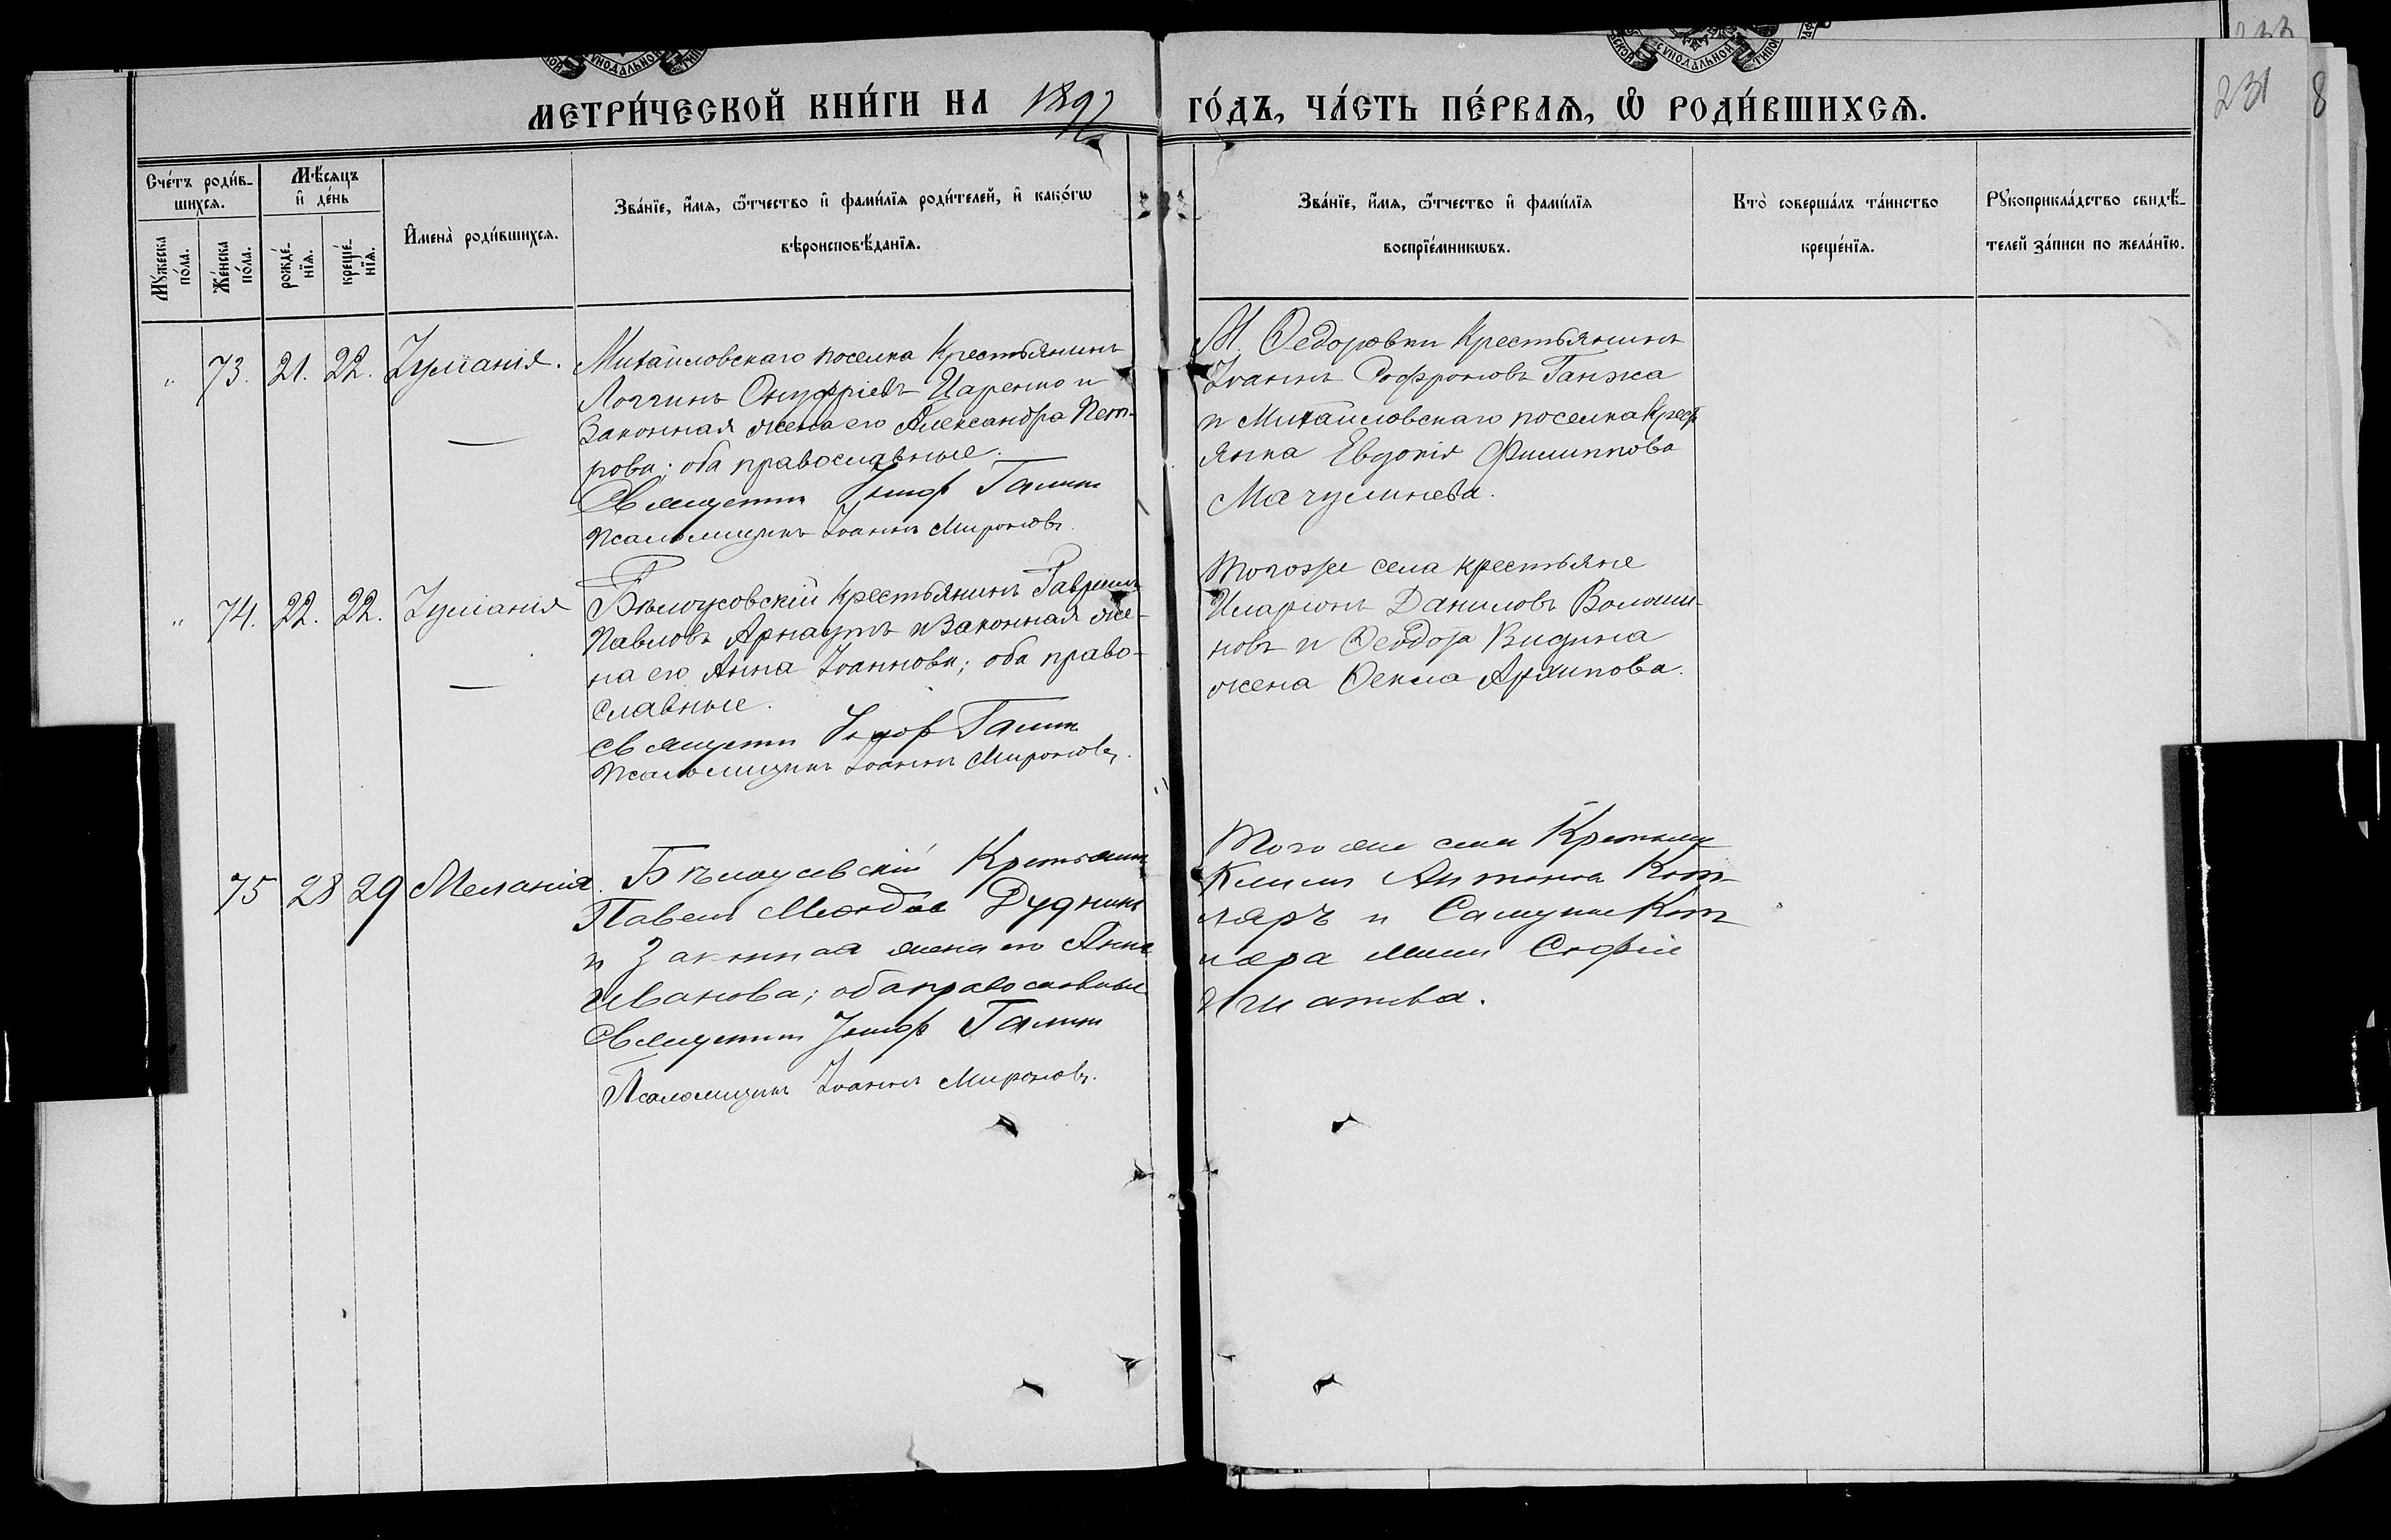 МЕТРИ́ЧЕСКОЙ КНИ́ГИ НА 1892 ГО́ДЪ, ЧА́СТЬ ПЕ́РВАѦ, Ѡ҆ РОДИ́ВШИХСѦ.
231 8
Сче́тъ роди́в-
шихсѧ.
Мꙋ́жеска по́ла.
Же́нска по́ла.
Мѣ́сѧцъ
и҆ де́нь
рожде́-
нїѧ.
креще́-
нїѧ.
И҆мена̀ роди́вшихсѧ.
Зва́нїе, и҆́мѧ, ѻ҆́тчество и҆ фами́лїѧ роди́телей, и҆ како́гѡ
вѣроисповѣ́данїѧ.
Зва́нїе, и҆́мѧ, ѻ҆́тчество и҆ фами́лїѧ
воспрїе́мникѡвъ.
Кто̀ соверша́лъ та́инство
креще́нїѧ.
Рꙋкоприкла́дство свидѣ́-
телей за́писи по жела́нїю.
„ 73. 21. 22. Іуліанія.
Михайловскаго поселка Крестьянинъ
Логгинъ Онуфріевъ Царенко и
Законная жена его Александра Пет-
рова; оба православные.
Священникъ
Псаломщикъ Іоаннъ Мироновъ.
М. Ѳедоровки Крестьянинъ
Іоаннъ Софроновъ Ганжа
и Михайловскаго поселка Крест
янка Евдокія Филиппова
Мачулинева.
„ 74. 22. 22. Іуліанія
Бѣлоусовскій Крестьянинъ Гавріилъ
Павловъ Арнаутъ и Законная же-
на его Анна Іоаннова; оба право-
славные.
Священникъ
Псаломщикъ Іоаннъ Мироновъ.
Тогоже села крестьяне
Иларіонъ Даниловъ Волоши-
новъ и Ѳеодора Видина
жена Ѳекла Архипова.
75 28 29 Меланія.
Бѣлоусовскій Крестьянинъ
Павелъ Дудникъ
и Законная жена его Анна
Иванова; оба православные
Священникъ
Псаломщикъ Іоаннъ Мироновъ.
Того же села Крестьяне
Климъ Антоновъ Кот-
ляръ и Самуила Кот
ляра жена Софія
Игнатьева.